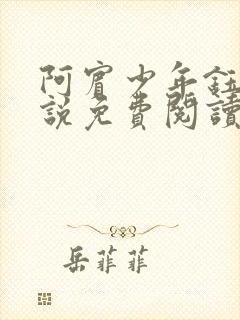 阿賓少年鈺
說免費閱讀
岳菲菲